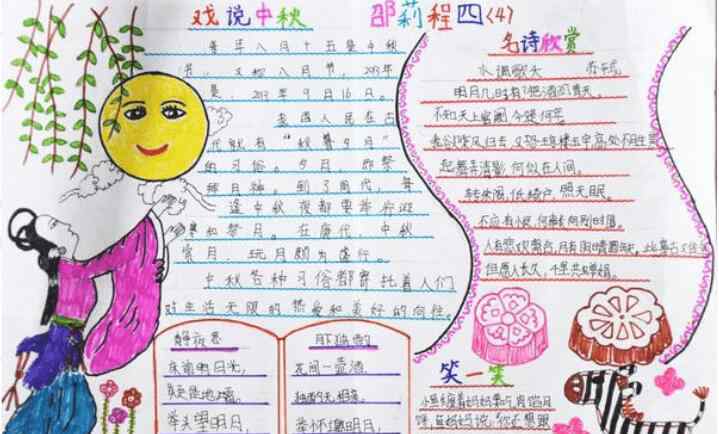 戏说中秋 邵莉程四<4>
每年八月十五是中秋
节，又称八月节，2013年
是，2013年9月16日。
我国人民在古
代就有“秋暮夕月”
的习俗。夕月，即祭
拜月神。到了周代，每
逢中秋夜都要举行迎
寒和祭月。在唐代，中秋
赏月、玩月颇为盛行。
中秋各种习俗都寄托着人们
对生活无限的热爱和美好的向往。
名诗欣赏
水调歌头 苏轼
明月几时有？把酒问青天。
不知天上宫阙，今夕是何年。
我欲乘风归去，又恐琼楼玉宇，高处不胜寒
起舞弄清影，何似在人间。
转朱阁，低绮户，照无眠。
不应有恨，何事长向别时圆。
人有悲欢离合，月有阴晴圆缺，此事古难全
但愿人长久，千里共婵娟。
静夜思
床前明月光，
疑是地上霜。
举头望明月，
月下独酌
花间一壶酒，
独酌无相亲。
举杯邀明月，
笑一笑